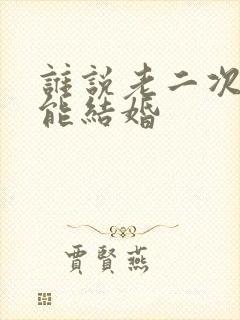 誰說老二次
能結婚
賈賢燕